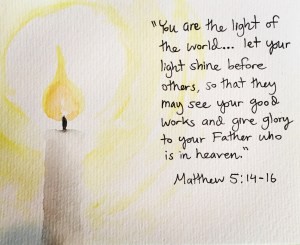 "You are the light of
the world... let your
light shine before
others, so that they
may see your good
works and give glory
to your Father who
is in heaven."
Matthew 5:14-16